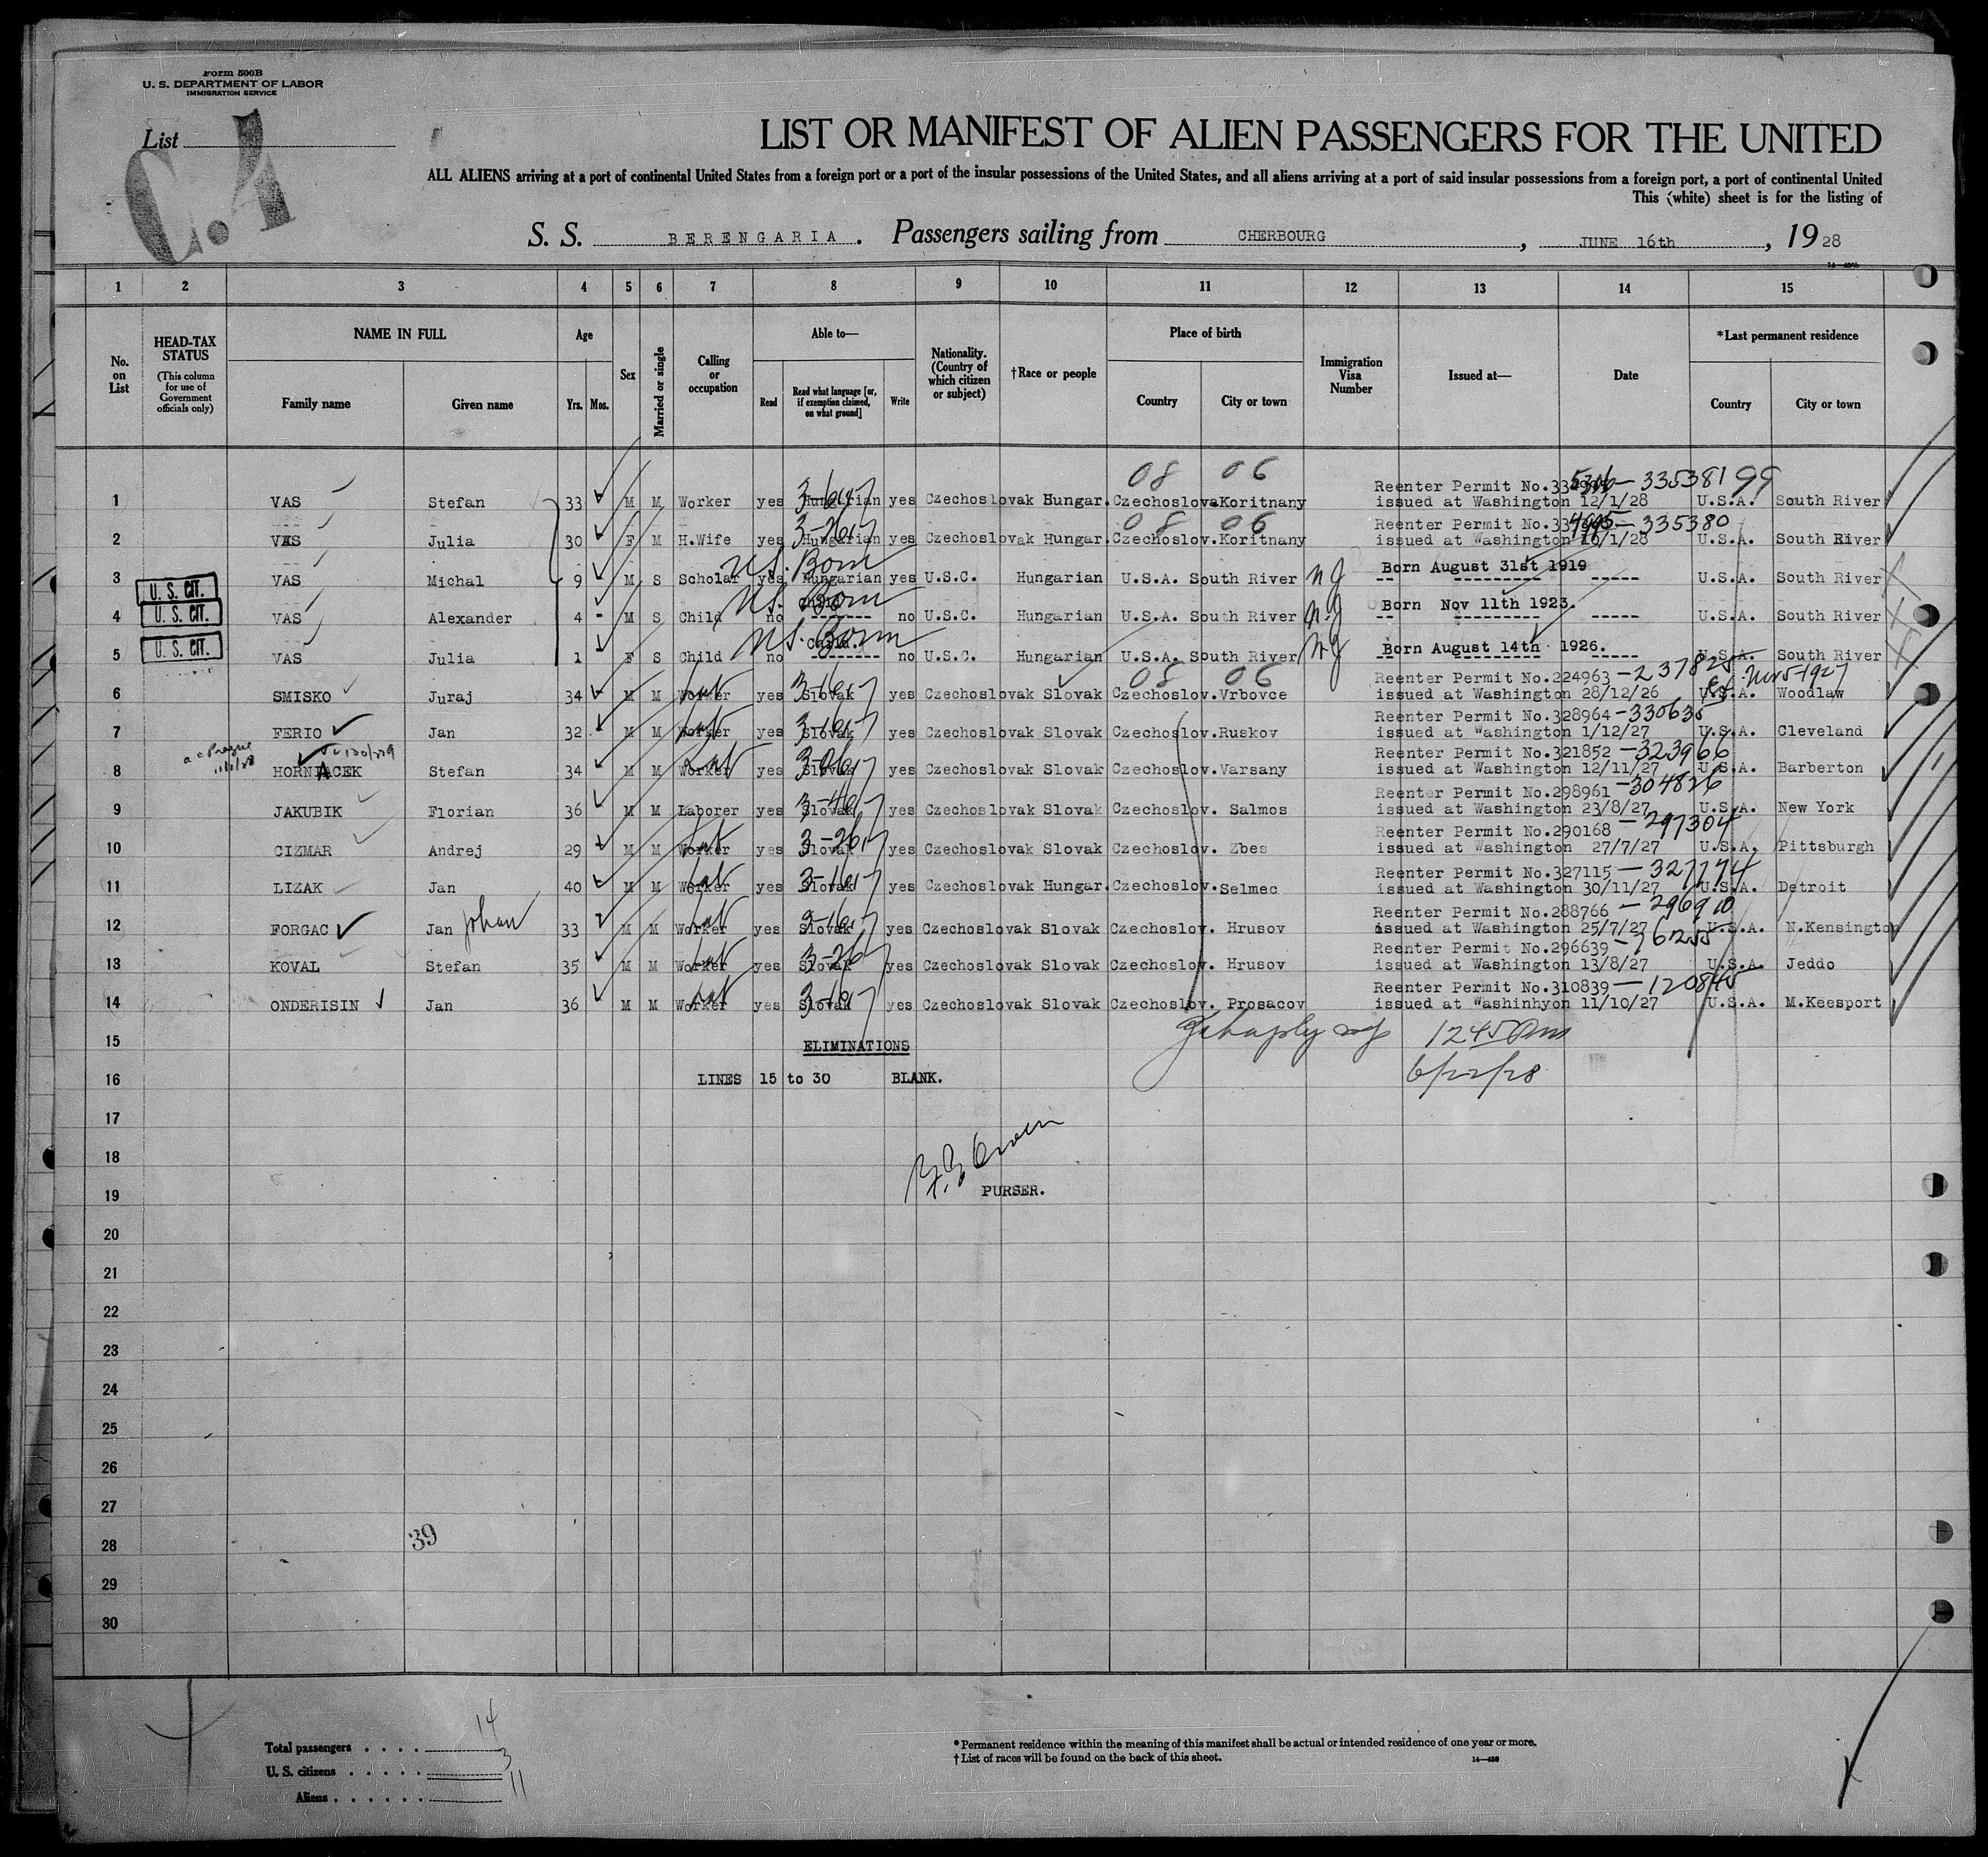 Form 500B
U. S. DEPARTMENT OF LABOR
IMMIGRATION SERVICE
List
C.4
LIST OR MANIFEST OF ALIEN PASSENGERS FOR THE UNITED
ALL ALIENS arriving at a port of continental United States from a foreign port or a port of the insular possessions of the United States, and all aliens arriving at a port of said insular possessions from a foreign port, a port of continental United
This (white) sheet is for the listing of
S. S. BERENGARIA. Passengers sailing from CHERBOURG, JUNE 16th, 1928
1 2 3 4 5 6 7 8 9 10 11 12 13 14 15
No. on List
HEAD-TAX STATUS (This column for use of Government officials only)
NAME IN FULL Family name Given name
Age Yrs. Mos.
Sex
Married or single
Calling or occupation
Able to— Read Read what language [or, if exemption claimed, on what ground] Write
Nationality. (Country of which citizen or subject)
†Race or people
Place of birth Country City or town
Immigration Visa Number
Issued at—
Date
*Last permanent residence Country City or town
08 06
Reenter Permit No. — 335381 99
1 VAS Stefan 33 M M Worker yes Hungarian yes Czechoslovak Hungar. Czechoslova Koritnany issued at Washington 12/1/28 U.S.A. South River
08 06
Reenter Permit No. — 335380
2 VAS Julia 30 F M H.Wife yes Hungarian yes Czechoslovak Hungar. Czechoslov. Koritnany issued at Washington 16/1/28 U.S.A. South River
U.S. Born
Born August 31st 1919
3 U. S. CIT. VAS Michal 9 M S Scholar yes Hungarian yes U.S.C. Hungarian U.S.A. South River NJ -- --------- ----- U.S.A. South River
U.S. Born
Born Nov 11th 1923.
4 U. S. CIT. VAS Alexander 4 - M S Child no child. ------- no U.S.C. Hungarian U.S.A. South River N.J -- --------- ----- U.S.A. South River
U.S. Born
Born August 14th 1926.
5 U. S. CIT. VAS Julia 1 F S Child no Child. ------- no U.S.C. Hungarian U.S.A. South River NJ -- --------- ----- U.S.A. South River
08 06
Reenter Permit No.224963 — 237825
6 SMISKO Juraj 34 - M M Worker yes Slovak yes Czechoslovak Slovak Czechoslov. Vrbovce issued at Washington 28/12/26 U.S.A. Woodlaw
Reenter Permit No.328964 — 330635
7 FERIO Jan 32 M M Worker yes Slovak yes Czechoslovak Slovak Czechoslov. Ruskov issued at Washington 1/12/27 U.S.A. Cleveland
Reenter Permit No.321852 — 323966
8 HORNIACEK Stefan 34 M M Worker yes Slovak yes Czechoslovak Slovak Czechoslov. Varsany issued at Washington 12/11/27 U.S.A. Barberton
Reenter Permit No.298961 — 304826
9 JAKUBIK Florian 36 M M Laborer yes Slovak yes Czechoslovak Slovak Czechoslov. Salmos issued at Washington 23/8/27 U.S.A. New York
Reenter Permit No.290168 — 297304
10 CIZMAR Andrej 29 M M Worker yes Slovak yes Czechoslovak Slovak Czechoslov. Zbes issued at Washington 27/7/27 U.S.A. Pittsburgh
Reenter Permit No.327115 — 327774
11 LIZAK Jan 40 M M Worker yes Slovak yes Czechoslovak Hungar. Czechoslov. Selmec issued at Washington 30/11/27 U.S.A. Detroit
Reenter Permit No.288766 — 296910
12 FORGAC Jan Johan 33 M M Worker yes Slovak yes Czechoslovak Slovak Czechoslov. Hrusov issued at Washington 25/7/27 U.S.A. N.Kensington
Reenter Permit No.296639
13 KOVAL Stefan 35 M M Worker yes Slovak yes Czechoslovak Slovak Czechoslov. Hrusov issued at Washington 13/8/27 U.S.A. Jeddo
Reenter Permit No.310839 — 120845
14 ONDERISIN Jan 36 M M Worker yes Slovak yes Czechoslovak Slovak Czechoslov. Prosacov issued at Washinhyon 11/10/27 U.S.A. M.Keesport
15 ELIMINATIONS 1245 am
16 LINES 15 to 30 BLANK. 6/22/28
17
18
19 PURSER.
20
21
22
23
24
25
26
27
28 39
29
30
Total passengers . . . . 14
U. S. citizens . . . . . 3
Aliens . . . . . . 11
*Permanent residence within the meaning of this manifest shall be actual or intended residence of one year or more.
†List of races will be found on the back of this sheet.